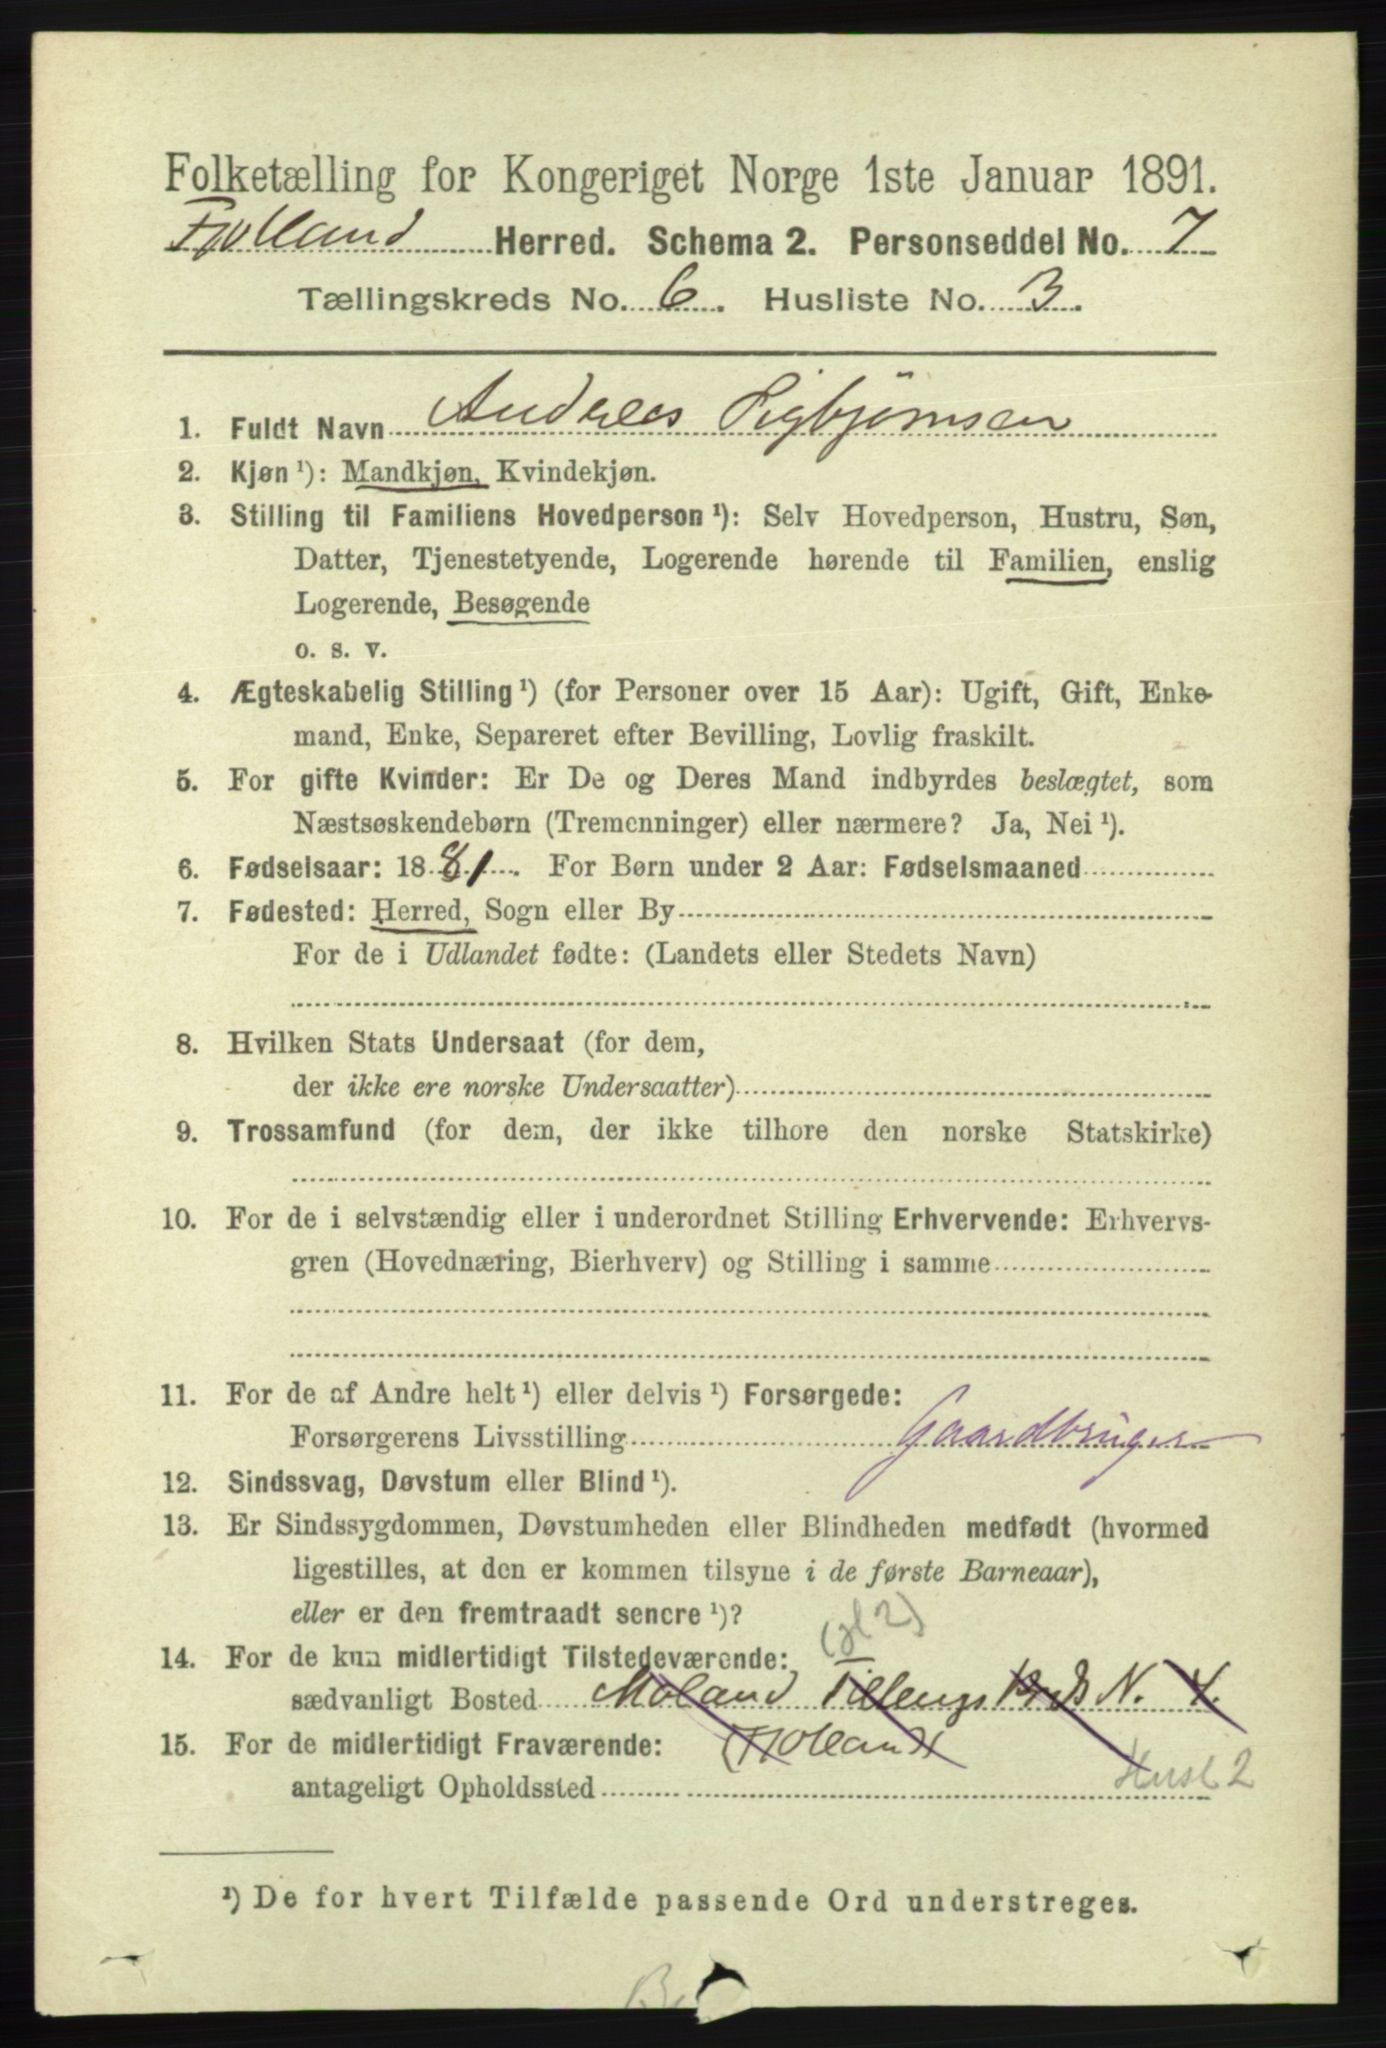 Folketælling for Kongeriget Norge 1ste Januar 1891.
Fjotland Herred. Schema 2. Personseddel No. 7
Tællingskreds No. 6. Husliste No. 3.
1. Fuldt Navn Andreas Sigbjørnsen
2. Kjøn ¹): Mandkjøn, Kvindekjøn.
3. Stilling til Familiens Hovedperson ¹): Selv Hovedperson, Hustru, Søn,
Datter, Tjenestetyende, Logerende hørende til Familien, enslig
Logerende, Besøgende
o. s. v.
4. Ægteskabelig Stilling ¹) (for Personer over 15 Aar): Ugift, Gift, Enke-
mand, Enke, Separeret efter Bevilling, Lovlig fraskilt.
5. For gifte Kvinder: Er De og Deres Mand indbyrdes beslægtet, som
Næstsøskendebørn (Tremenninger) eller nærmere? Ja, Nei ¹).
6. Fødselsaar: 1881. For Børn under 2 Aar: Fødselsmaaned
7. Fødested: Herred, Sogn eller By
For de i Udlandet fødte: (Landets eller Stedets Navn)
8. Hvilken Stats Undersaat (for dem,
der ikke ere norske Undersaatter)
9. Trossamfund (for dem, der ikke tilhore den norske Statskirke)
10. For de i selvstændig eller i underordnet Stilling Erhvervende: Erhvervs-
gren (Hovednæring, Bierhverv) og Stilling i samme
11. For de af Andre helt ¹) eller delvis ¹) Forsørgede:
Forsørgerens Livsstilling Gaardbruger
12. Sindssvag, Døvstum eller Blind ¹).
13. Er Sindssygdommen, Døvstumheden eller Blindheden medfødt (hvormed
ligestilles, at den er kommen tilsyne i de første Barneaar),
eller er den fremtraadt senere ¹)?
14. For de kun midlertidigt Tilstedeværende:
sædvanligt Bosted Moland N. 4.
15. For de midlertidigt Fraværende: (Fjotland
antageligt Opholdssted Husl 2
¹) De for hvert Tilfælde passende Ord understreges.